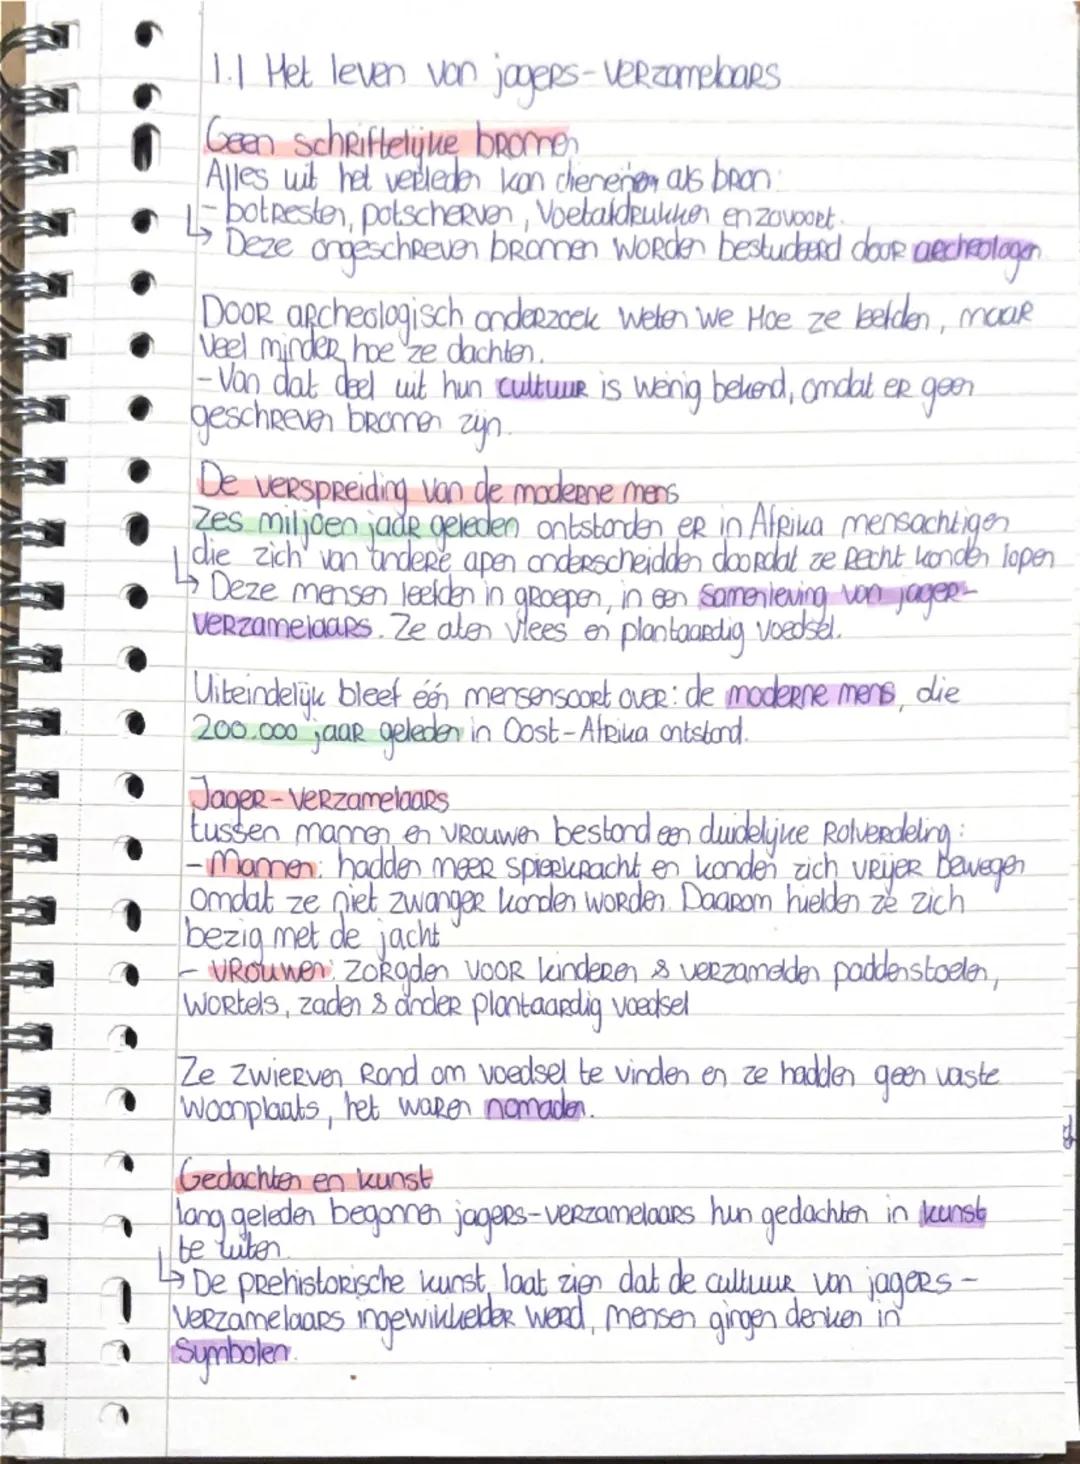 1.1 Het leven van jagers-verzamelaars
Geen schriftelijke bronnen
Alles uit het verleden kan dienen als bron:
- botresten, potscherven, voetafdrukken enzovoort.
↳ Deze ongeschreven bronnen worden bestudeerd door archeologen
Door archeologisch onderzoek weten we Hoe ze leefden, maar
veel minder hoe ze dachten.
- Van dat deel uit hun cultuur is weinig bekend, omdat er geen
geschreven bronnen zijn.
De verspreiding van de moderne mens
Zes miljoen jaar geleden ontstonden er in Afrika mensachtigen
die zich van andere apen onderscheidden doordat ze recht konden lopen
↳ Deze mensen leefden in groepen, in een samenleving van jager-
verzamelaars. Ze aten vlees en plantaardig voedsel.
Uiteindelijk bleef één mensensoort over: de moderne mens, die
200.000 jaar geleden in Oost-Afrika ontstond.
Jager-verzamelaars
tussen mannen en vrouwen bestond een duidelijke rolverdeling:
- Mannen: hadden meer spierkracht en konden zich vrijer bewegen
omdat ze niet zwanger konden worden. Daarom hielden ze zich
bezig met de jacht
- vrouwen: zorgden voor kinderen & verzamelden paddenstoelen,
wortels, zaden & ander plantaardig voedsel
Ze zwierven rond om voedsel te vinden en ze hadden geen vaste
woonplaats, het waren nomaden.
Gedachten en kunst
lang geleden begonnen jagers-verzamelaars hun gedachten in kunst
te uiten.
↳ De prehistorische kunst laat zien dat de cultuur van jagers-
verzamelaars ingewikkelder werd, mensen gingen denken in
symbolen.